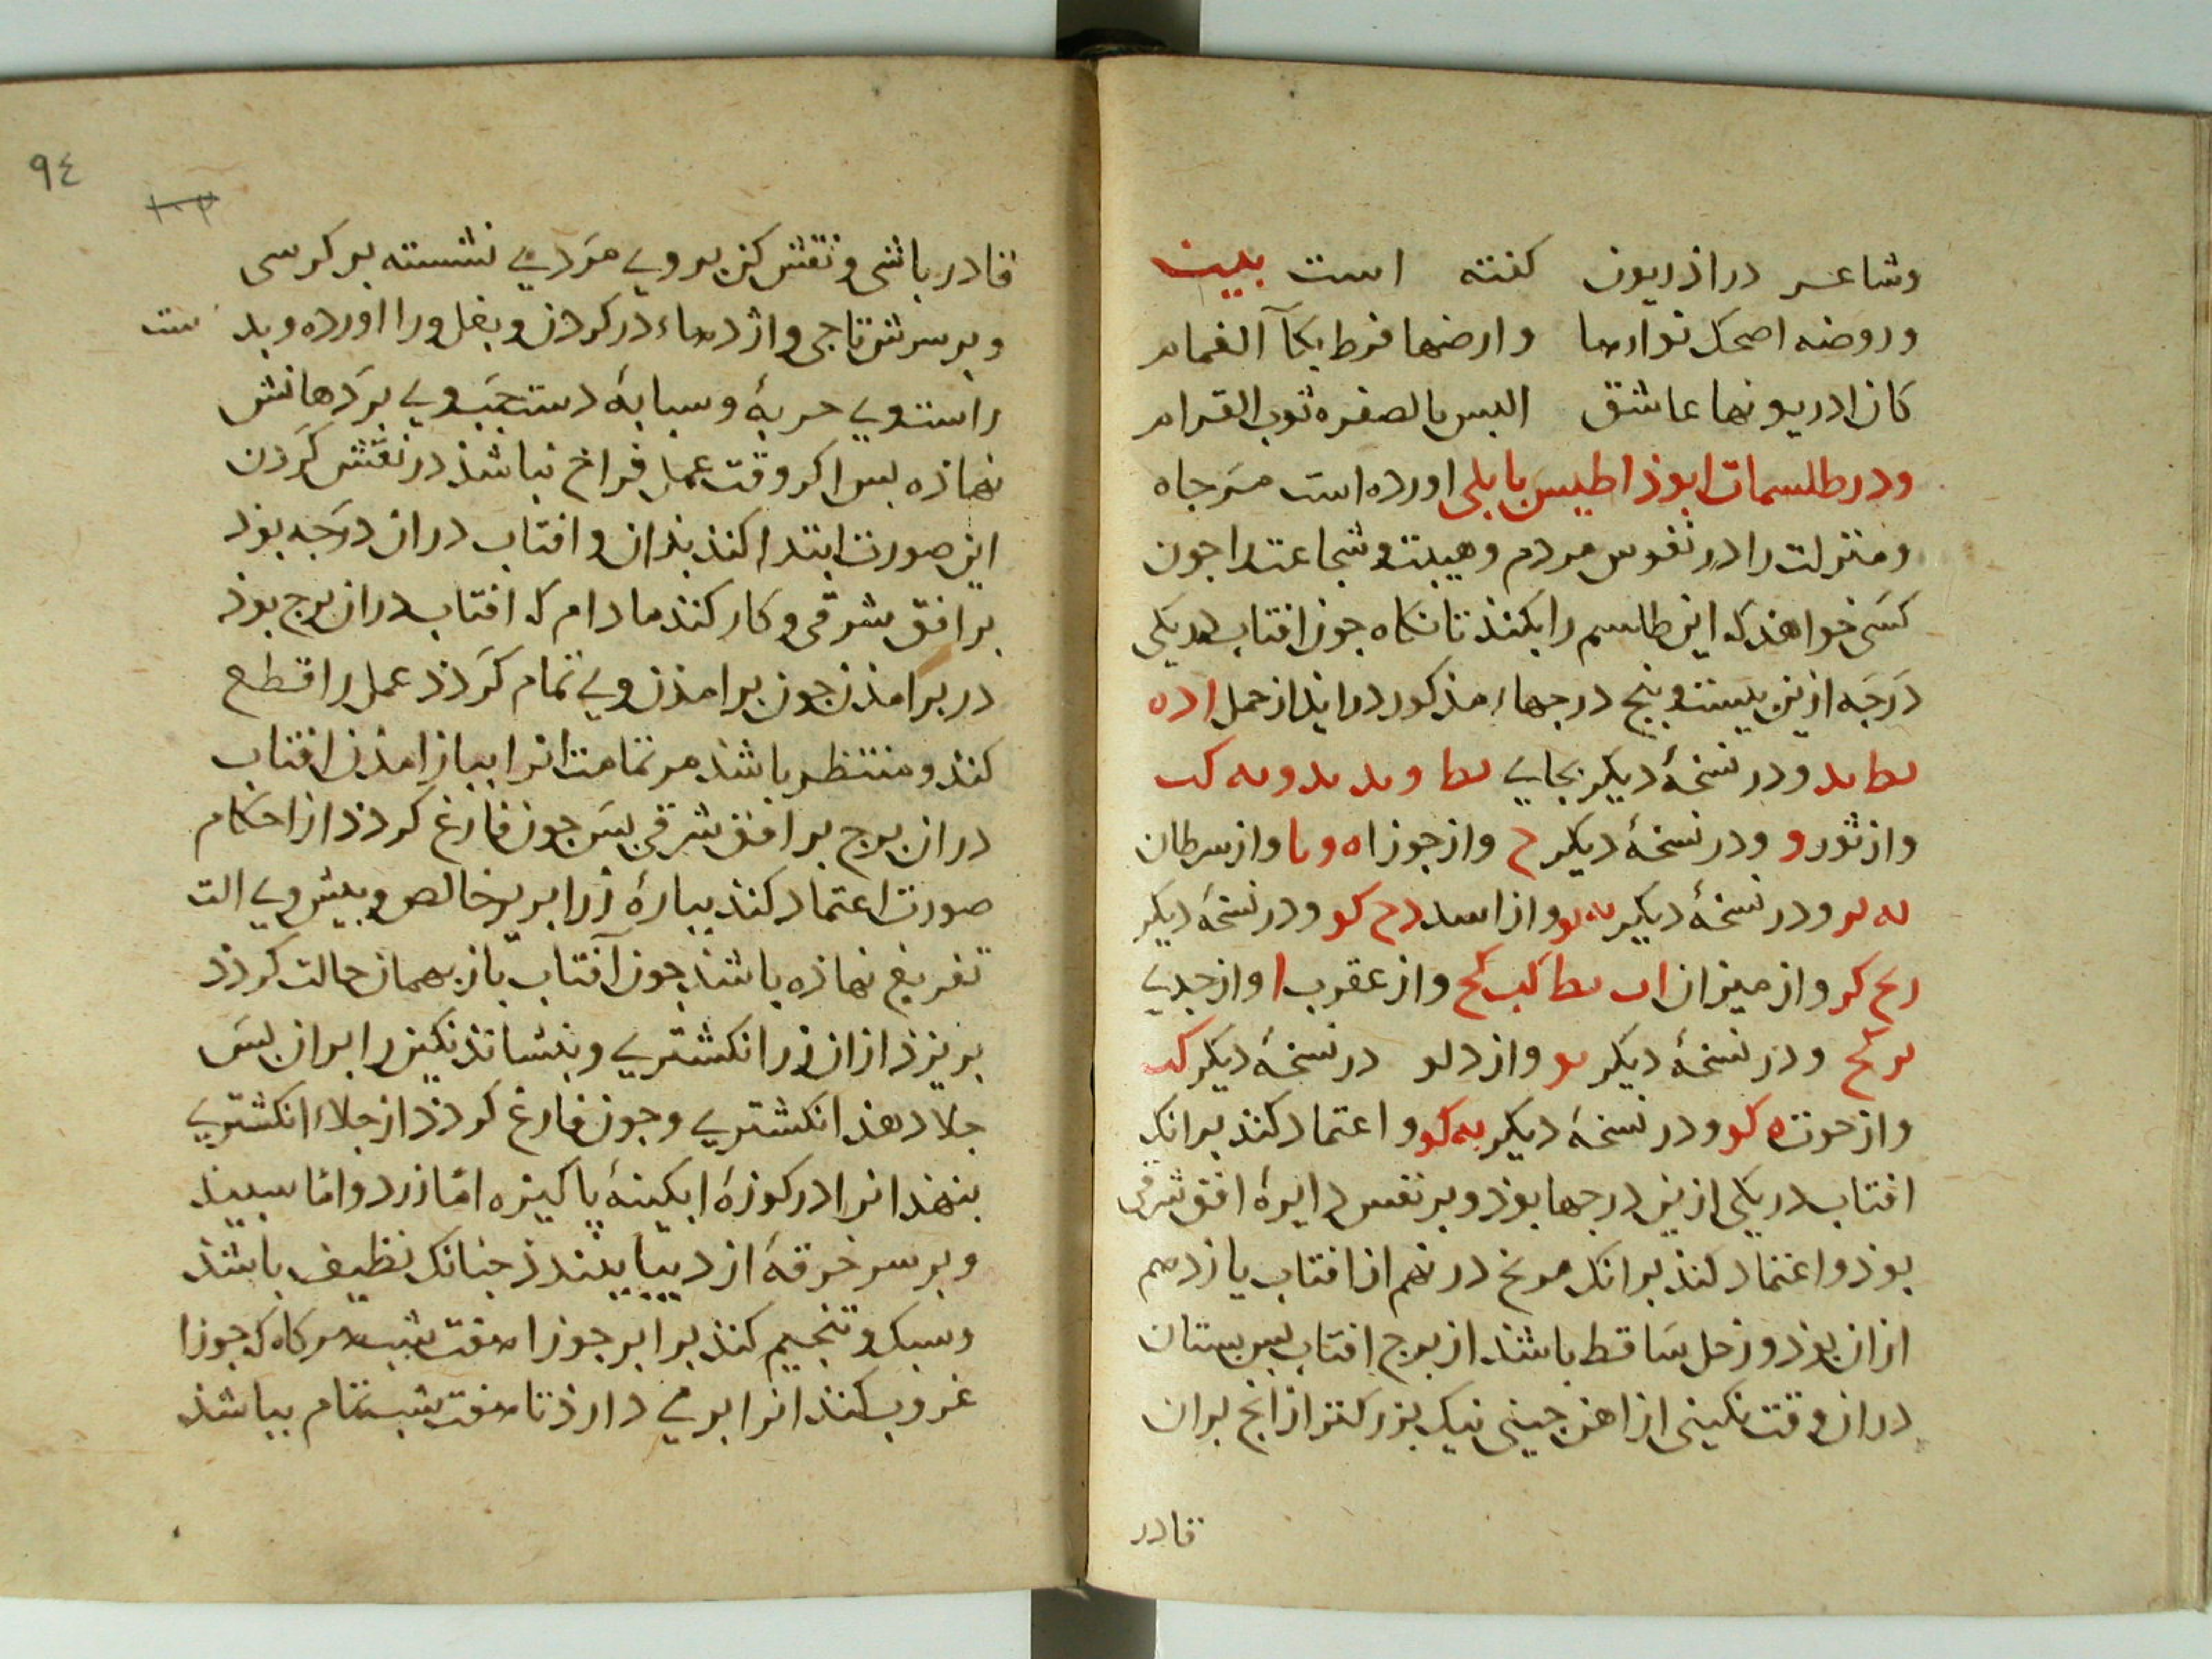 وشاعر در اذریون کفته است بیت
وروضه اضحک نوارها وارضها فرط بکآ الغمام
کان ادریونها عاشق البس بالصفره ثوب القرام
ودر طلسمات ابوذاطیس بابلی اورده است مرجاه
ومنزلت را در نفوس مردم وهیبت وشجاعت را جون
کسی خواهذ که این طلسم را بکنذ تا نکاه جون افتاب در یکی
درجه ازین بیست وبنج درجهاء مذکور در ایذ از حمل ا د ه
ىط ىد ودر نسخهٔ دیکر بجای ىط و ىد ىد و ىه کب
واز ثور و ودر نسخهٔ دیکر ح واز جوزا ه و ىا واز سرطان
ىه ىو ودر نسخهٔ دیکر ىه ىو واز اسد د ح کو ودر نسخهٔ دیکر
ىح کر واز میزان اب ىط کب کح واز عقرب ا واز جدی
ىو کح ودر نسخهٔ دیکر ىو واز دلو در نسخهٔ دیکر کب
واز حوت ه کو ودر نسخهٔ دیکر ىه کو واعتماد کنذ برانک
افتاب در یکی ازین درجها بوذ وبر نفس دایرهٔ افق شرقی
بوذ واعتماد کنذ برانک مریخ در نهم از افتاب یازدهم
ازان بوذ وزحل ساقط باشذ از برج افتاب بس بستان
دران وقت نکینی از اهن جینی نیک بزرکتر از انج بران
قادر
٩٤
قادر باشی ونقش کن بروی مردی نشسته بر کرسی
وبر سرش تاجی واژدهاء در کردن وبغل ورا اورده وبدست
راست وی حربهٔ وسبابهٔ دست جب وی بر دهانش
نهاذه بس اکر وقت عمل فراخ نباشذ در نقش کردن
این صورت ابتدا کنذ بذان وافتاب دران درجه بوذ
بر افق شرقی وکار کنذ مادام که افتاب دران برج بوذ
در برامذن جون برامذن وی تمام کردذ عمل را قطع
کنذ ومنتظر باشذ مر تمامت انرا بباز امذن افتاب
دران برج بر افق شرقی بس جون فارغ کردذ از احکام
صورت اعتماد کنذ ببارهٔ زر ابریز خالص وبیش وی الت
تفریغ نهاذه باشذ جون آفتاب باز بهمان حالت کردذ
بریزذ ازان زر انکشتری وبنشانذ نکین را بران بس
جلا دهذ انکشتری وجون فارغ کردذ از جلاء انکشتری
بنهذ انرا در کوزهٔ ابکینهٔ پاکیزه امّا زرد وامّا سبید
وبر سر خرقهٔ از دیبا ببندذ جنانک نظیف باشذ
وسبک وتنجیم کنذ برابر جوزا هفت شب هرکاه که جوزا
غروب کنذ انرا برمی دارذ تا هفت شب تمام بباشذ